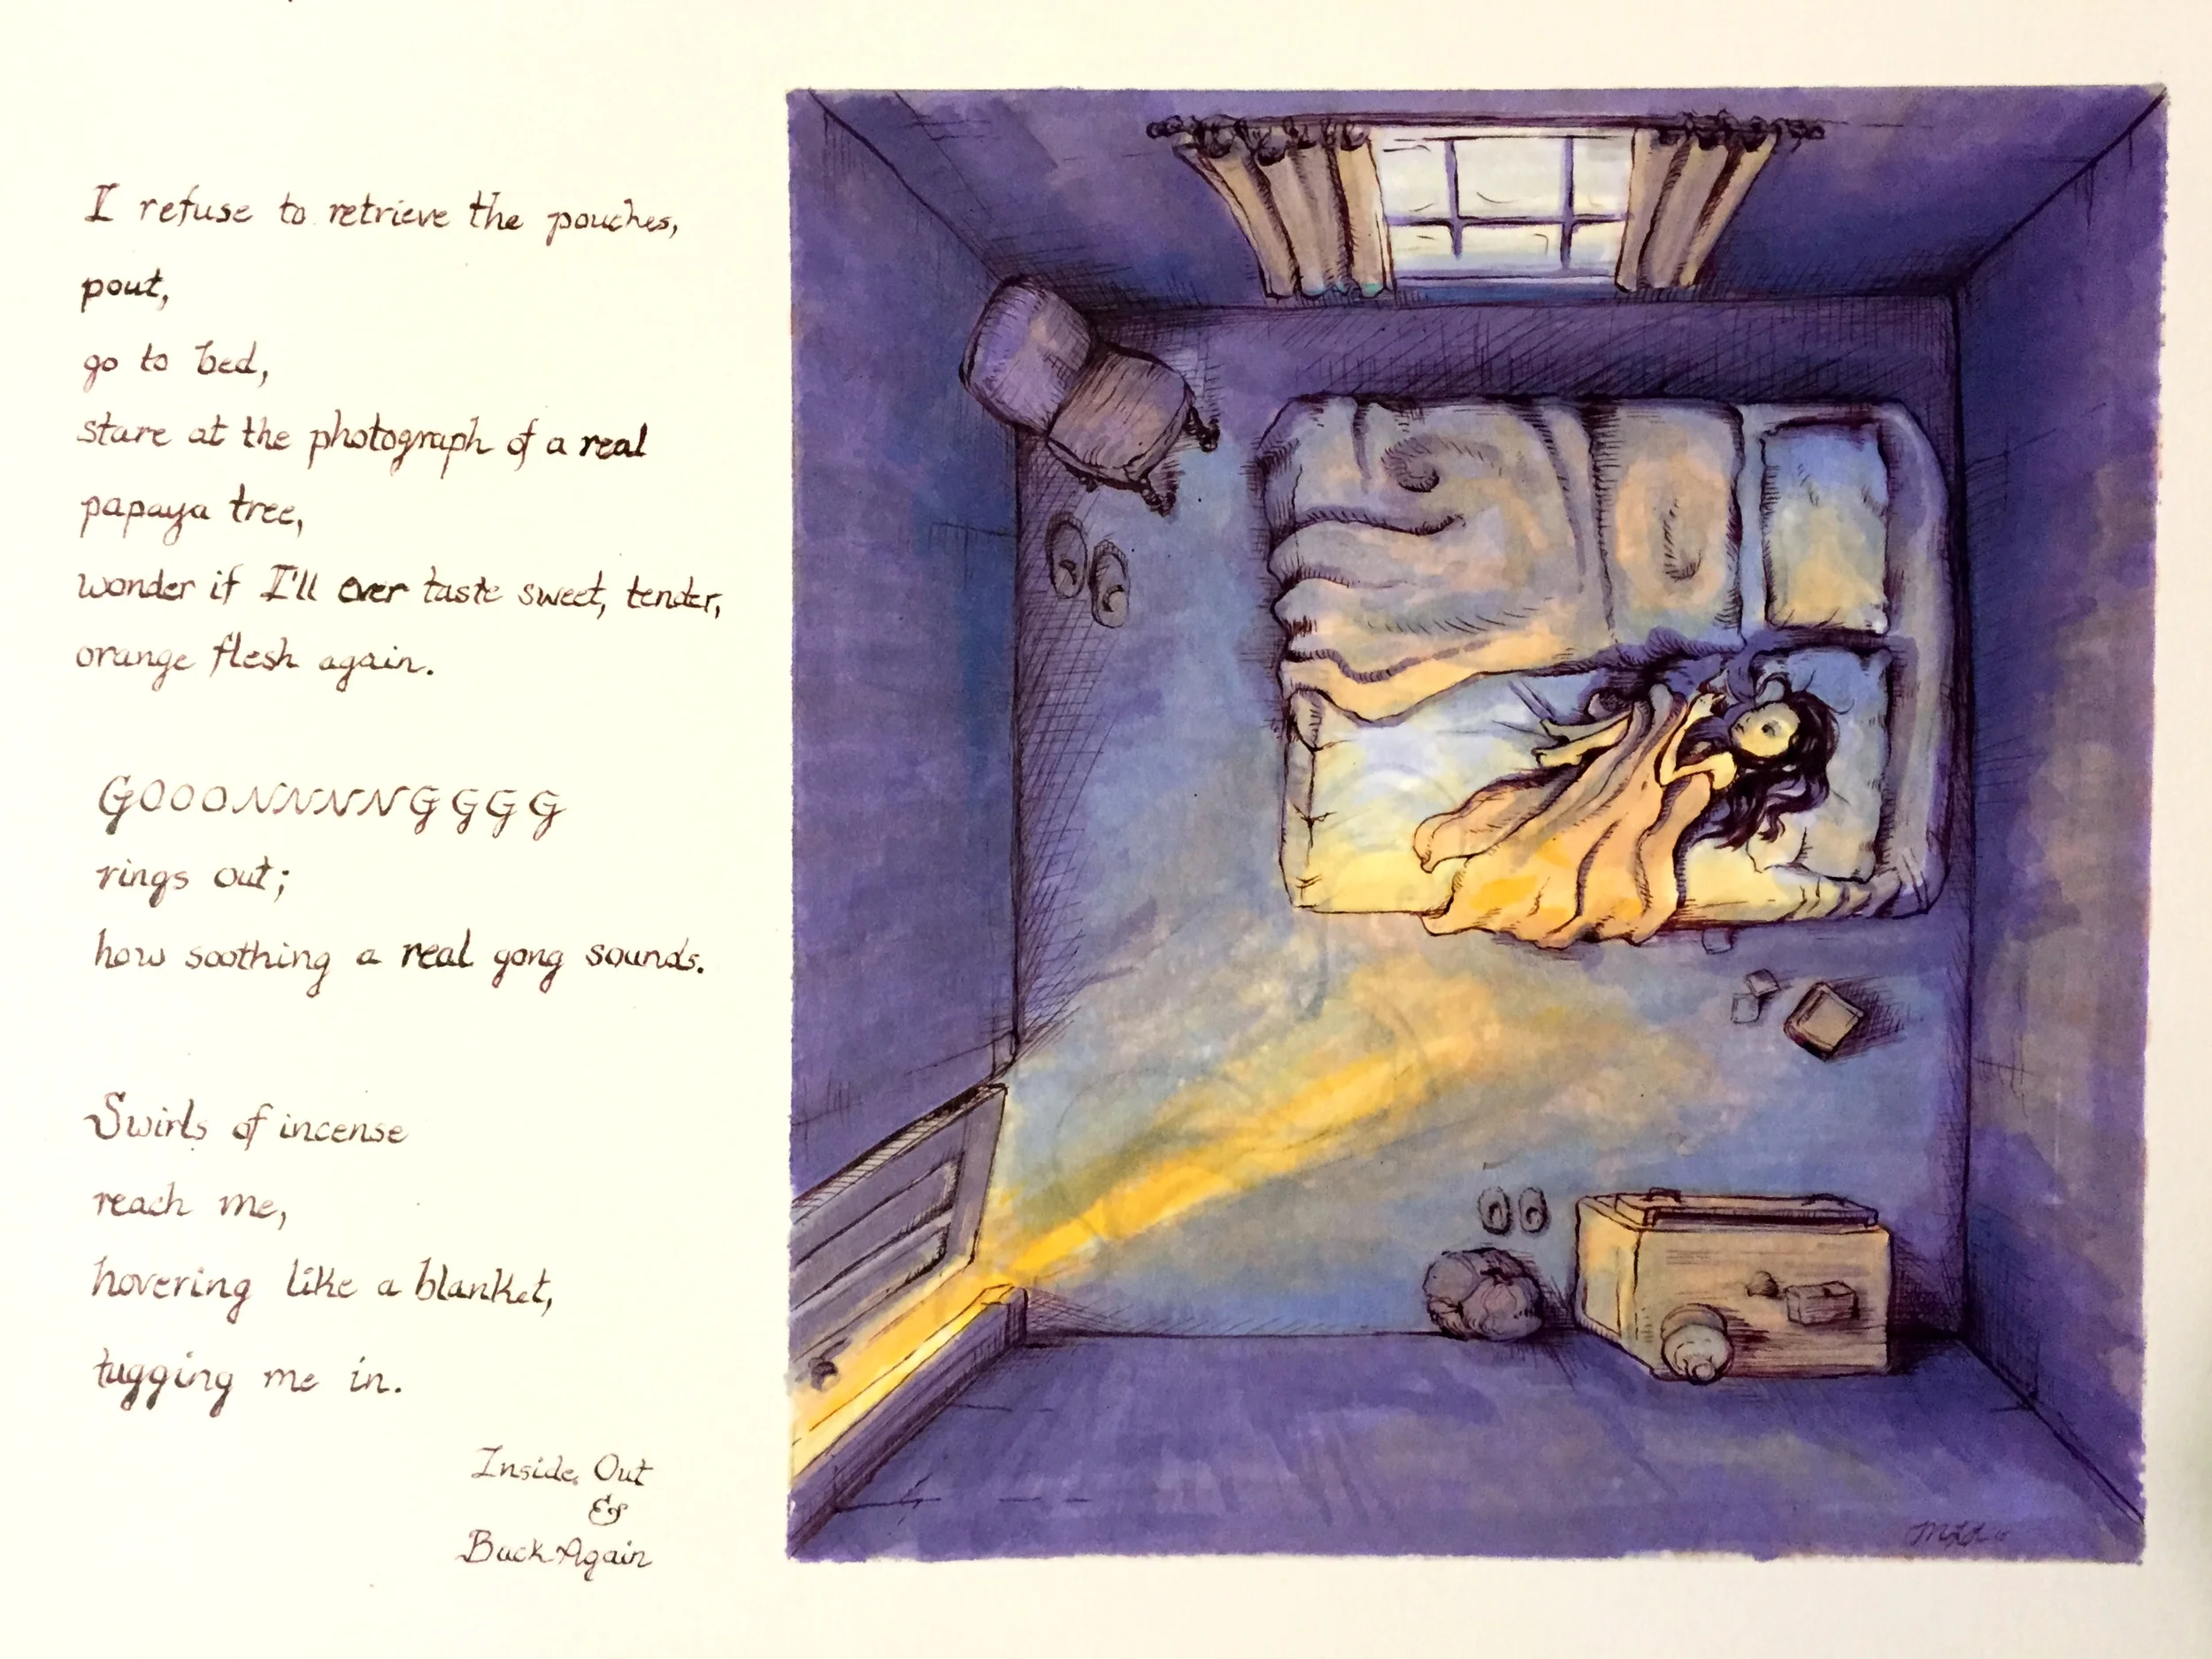 I refuse to retrieve the pouches,
pout,
go to bed,
stare at the photograph of a real
papaya tree,
wonder if I'll ever taste sweet, tender,
orange flesh again.
GOOONNNNGGGG
rings out;
how soothing a real gong sounds.
Swirls of incense
reach me,
hovering like a blanket,
tugging me in.
Inside Out
&
Back Again